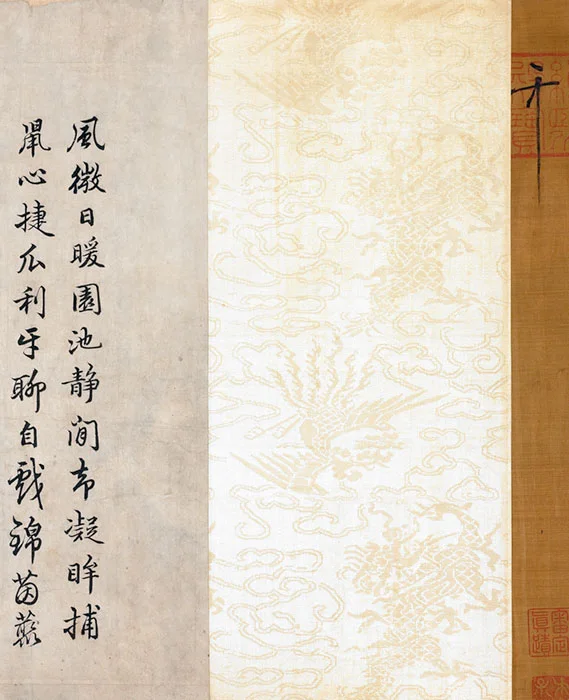 風微日暖園池静閒凝眸捕
鼠心捷爪利牙聊自戲錦茵